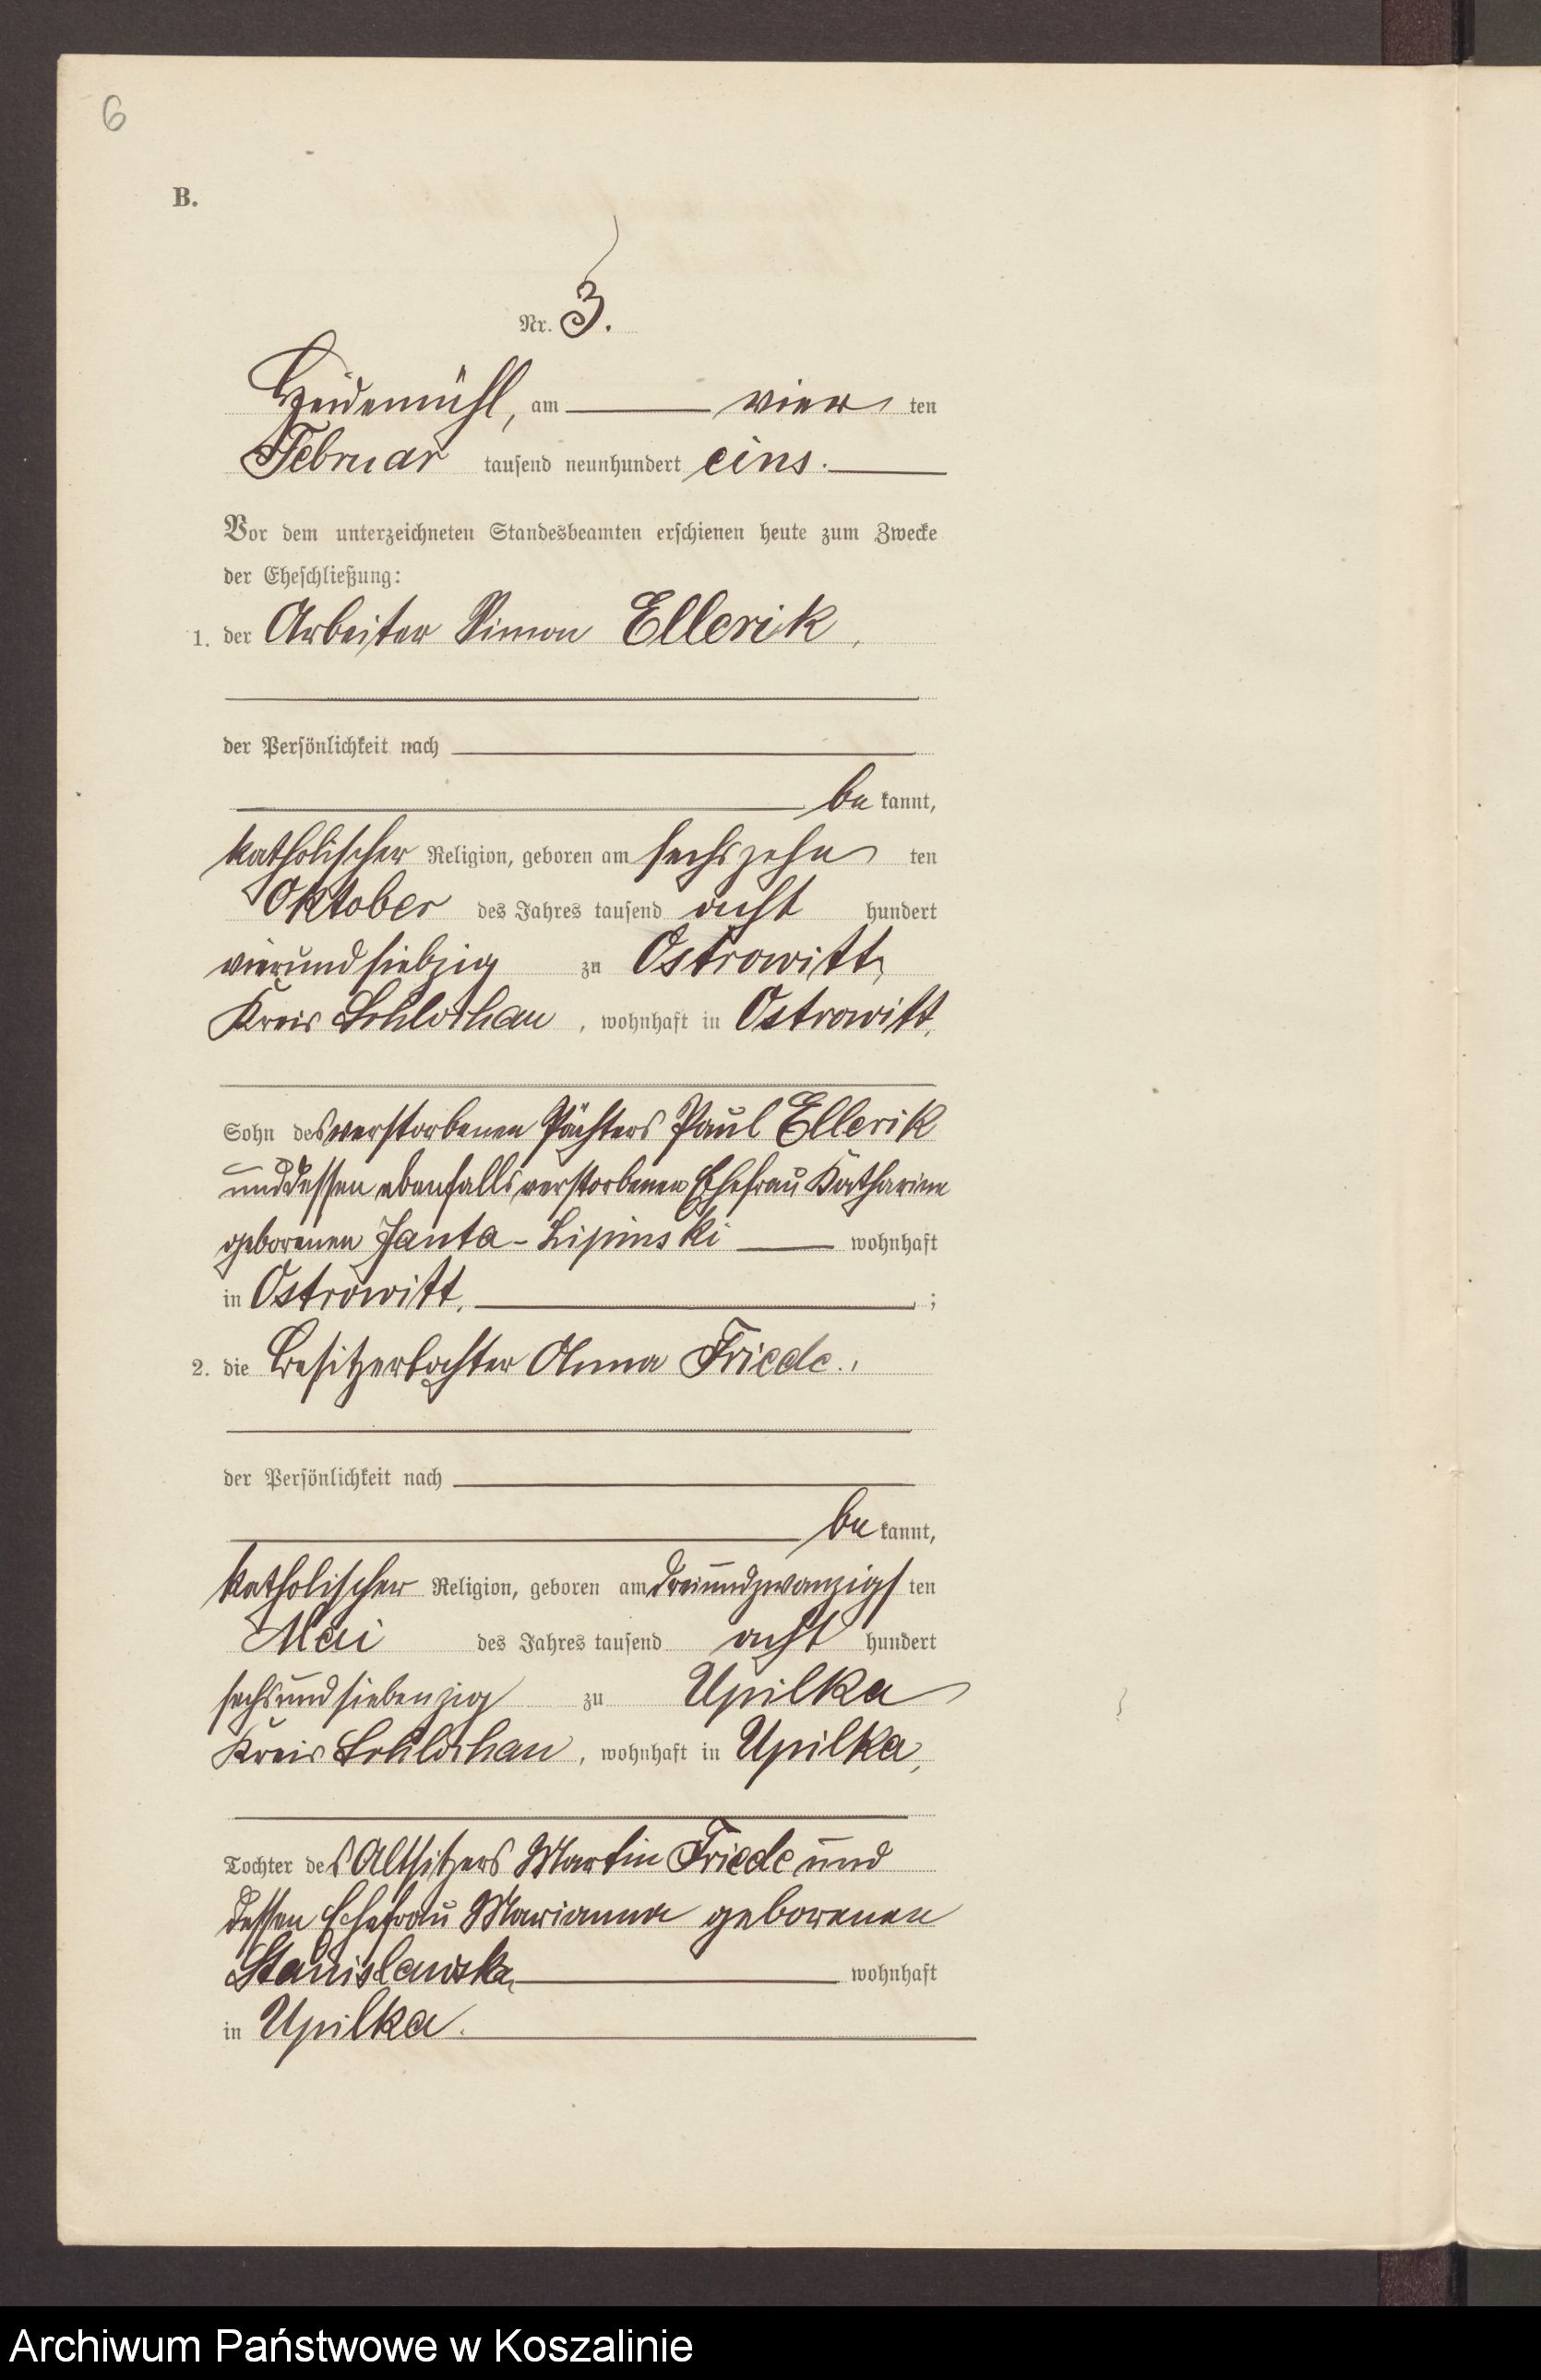 6
B.
Nr. 3.
Heidemühl, am vier ten
Februar tausend neunhundert eins.
Vor dem unterzeichneten Standesbeamten erschienen heute zum Zwecke
der Eheschließung:
1. der Arbeiter Simon Ellerik,
der Persönlichkeit nach
be kannt,
katholischer Religion, geboren am sechszehn ten
Oktober des Jahres tausend acht hundert
vierundsiebzig zu Ostrowitt,
Kreis Schlochau, wohnhaft in Ostrowitt,
Sohn des verstorbenen Pächters Paul Ellerik
und dessen ebenfalls verstorbenen Ehefrau Katharina
geborenen Janta-Lipinski wohnhaft
in Ostrowitt, ;
2. die Besitzertochter Anna Friede.,
der Persönlichkeit nach
be kannt,
katholischer Religion, geboren am dreiundzwanzigs ten
Mai des Jahres tausend acht hundert
sechsundsiebenzig zu Upilka
Kreis Schlochau, wohnhaft in Upilka,
Tochter des Altsitzers Martin Friede und
dessen Ehefrau Marianna geborenen
Stanislawska wohnhaft
in Upilka.
Archiwum Państwowe w Koszalinie